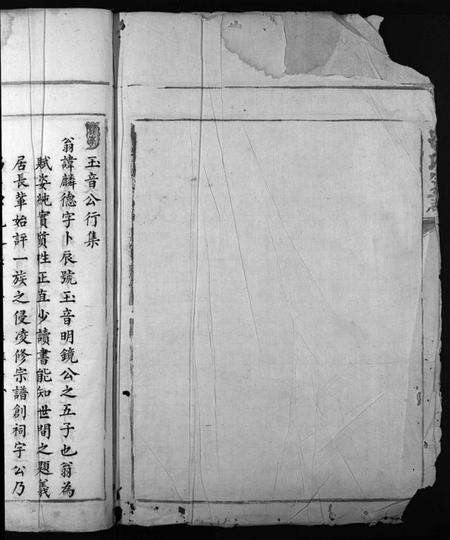 玉音公行集
翁諱麟德字卜辰號玉音明鏡公之五子也翁為
賦姿純實質性正直少讀書能知世間之題義
居長輩始評一族之侵凌修宗譜創祠宇公乃